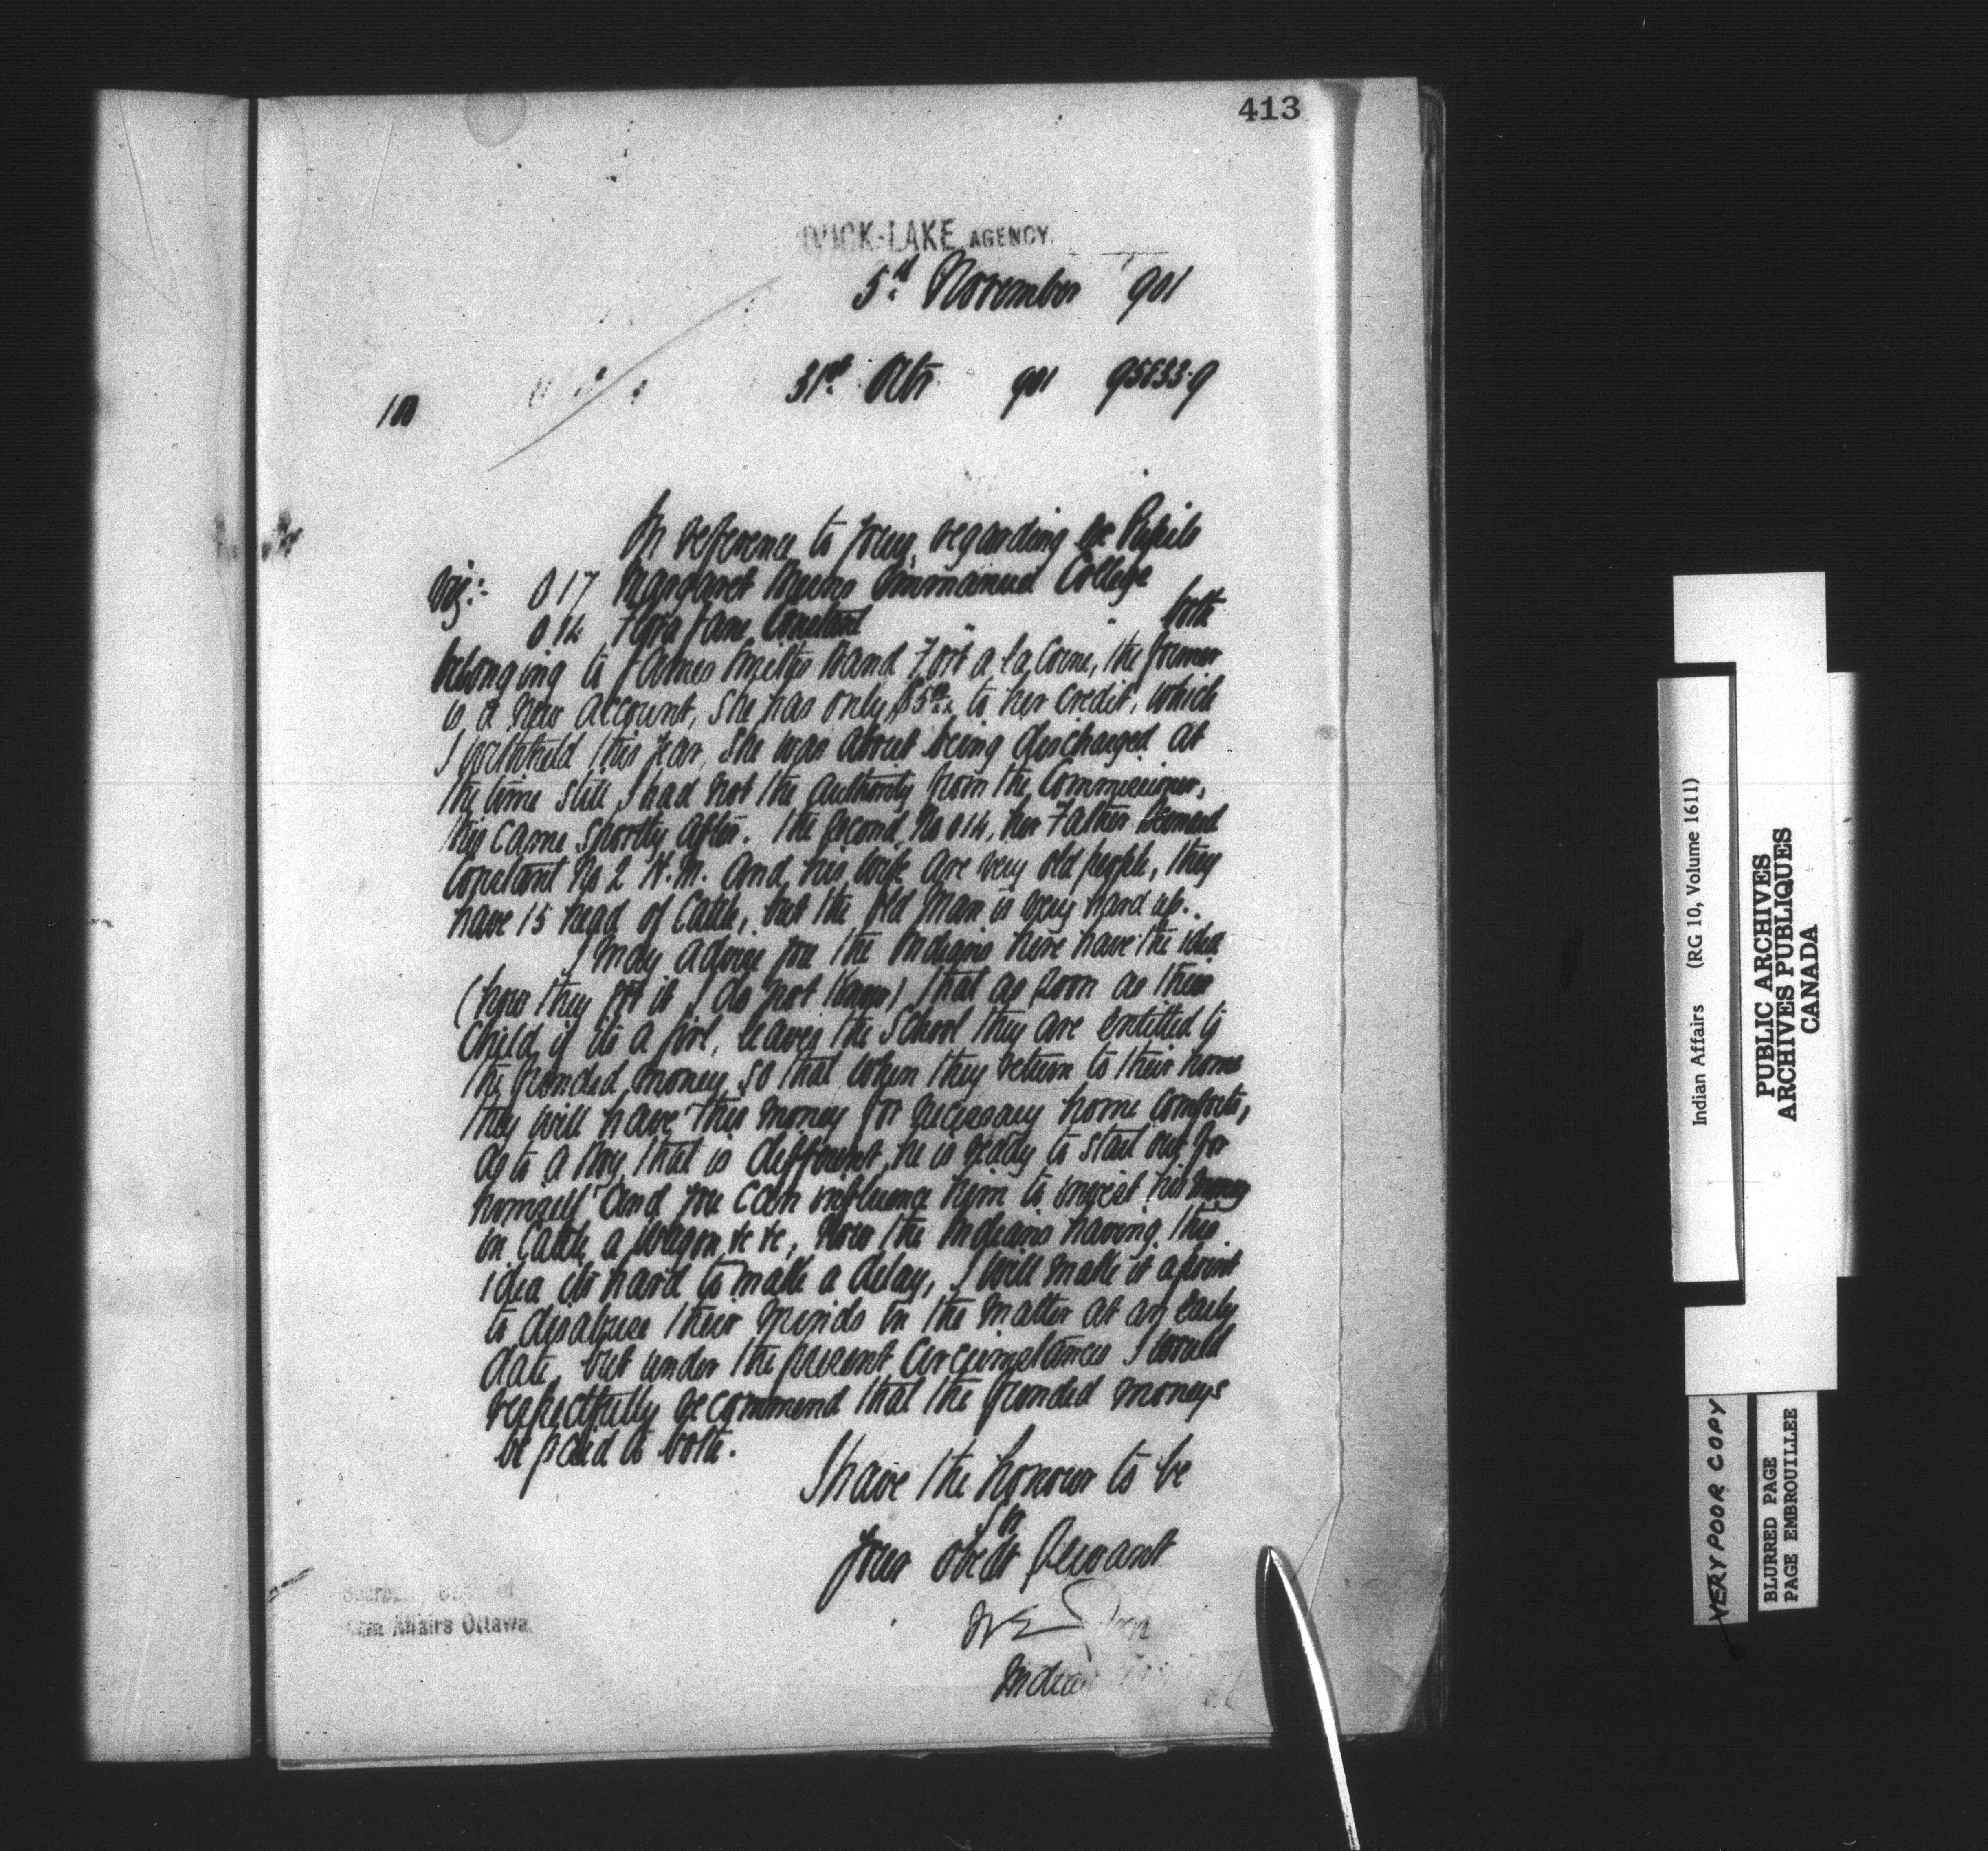 413
DUCK-LAKE AGENCY.
5th November 901
31st Octr 901 95833-9
100
In reference to yours, regarding ex Pupils
viz:- 017 Margaret Emmanuel College
014 Flora Jane Constant " " both
belonging to James Smiths Band Fort a la Corne, the former
is a new account, she has only $5.00 to her credit, which
I withheld this year, she was about being discharged at
the time still I had not the authority from the Commissioner,
this came shortly after. The second, No 014, her Father Bernard
Constant No 2 H.M. and his wife are very old people, they
have 15 head of Cattle, but the old Man is very hard up.
I may advise you the Indians here have the idea
(how they got it I do not know) that as soon as their
child, if its a girl, leaves the School they are entitled to
the funded money so that when they return to their home
they will have this money for necessary home comforts,
as to a boy that is different, he is ready to start out for
himself and you can influence him to invest his money
in Cattle, a wagon &c &c, now the Indians having this
idea its hard to make a delay, I will make it a point
to disabuse their minds in the matter at an early
date, but under the present circumstances I would
respectfully recommend that the funded moneys
be paid to both.
I have the honour to be
Sir
Your obedt Servant
W E Jones
Indian
Affairs Ottawa
Indian Affairs (RG 10, Volume 1611)
PUBLIC ARCHIVES
ARCHIVES PUBLIQUES
CANADA
VERY POOR COPY
BLURRED PAGE
PAGE EMBROUILLEE